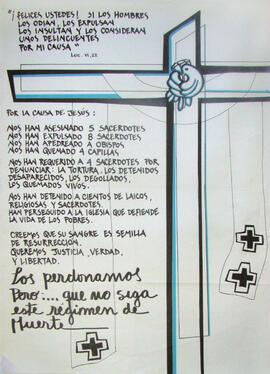 "¡FELICES USTEDES! SI LOS HOMBRES
LOS ODIAN, LOS EXPULSAN
LOS INSULTAN Y LOS CONSIDERAN
UNOS DELINCUENTES
POR MI CAUSA"
LUC. VI, 22
POR LA CAUSA DE JESÚS:
NOS HAN ASESINADO 5 SACERDOTES
NOS HAN EXPULSADO 8 SACERDOTES
NOS HAN APEDREADO A OBISPOS
NOS HAN QUEMADO 4 CAPILLAS
NOS HAN REQUERIDO A 4 SACERDOTES POR
DENUNCIAR: LA TORTURA, LOS DETENIDOS
DESAPARECIDOS, LOS DEGOLLADOS,
LOS QUEMADOS VIVOS.
NOS HAN DETENIDO A CIENTOS DE LAICOS,
RELIGIOSAS Y SACERDOTES.
HAN PERSEGUIDO A LA IGLESIA QUE DEFIENDE
LA VIDA DE LOS POBRES.
CREEMOS QUE SU SANGRE ES SEMILLA
DE RESURRECCIÓN.
QUEREMOS JUSTICIA, VERDAD,
Y LIBERTAD.
Los perdonamos
Pero.... que no siga
este régimen de
Muerte